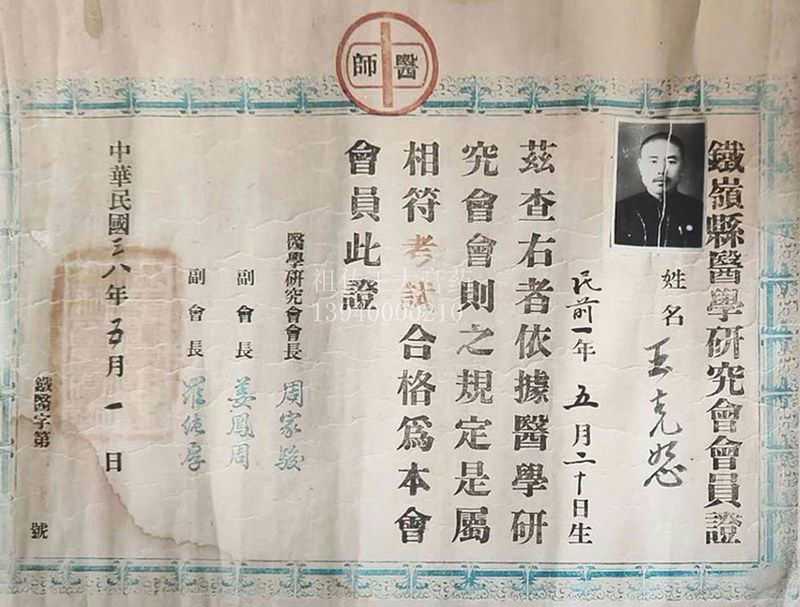 醫師
鐵嶺縣醫學研究會會員證
姓名 王克恕
民前一年 五月二十日生
茲查右者依據醫學研
究會會則之規定是屬
相符考試合格爲本會
會員此證
醫學研究會會長 周家駿
副會長 姜鳳周
副會長
中華民國三八年五月一日
鐵醫字第 號
王大膏药
13940000210